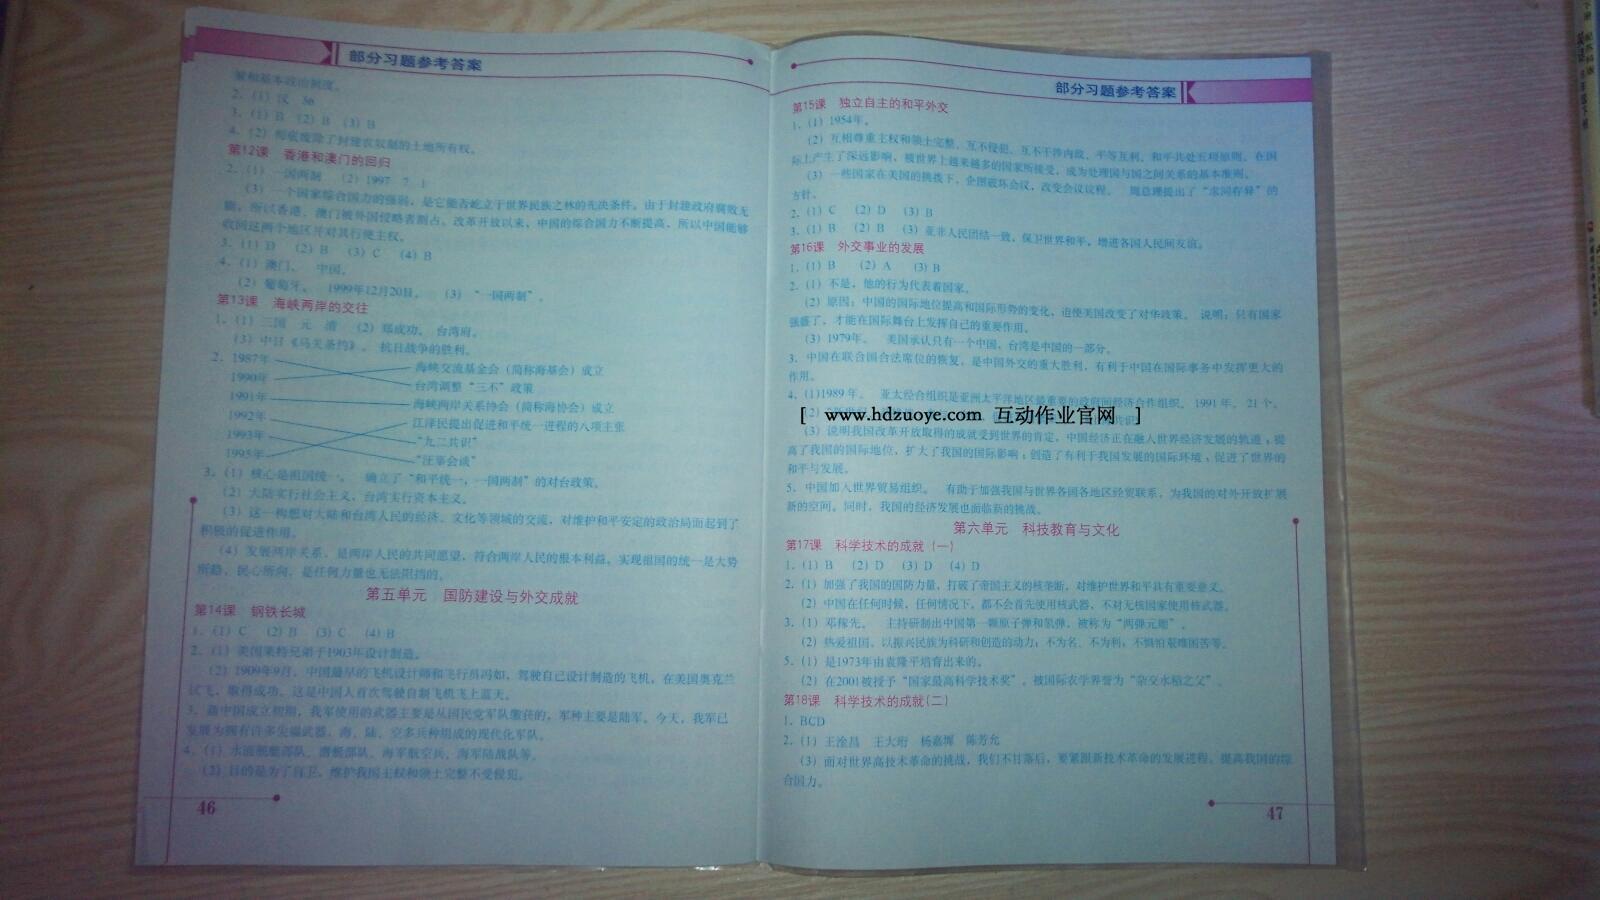 部分习题参考答案
量和基本政治制度。
2.（1）汉 56
3.（1）B （2）B （3）B
4.（2）彻底废除了封建农奴制的土地所有权。
第12课 香港和澳门的回归
2.（1）一国两制 （2）1997 7 1
（3）一个国家综合国力的强弱，是它能否屹立于世界民族之林的先决条件。由于封建政府腐败无
能，所以香港、澳门被外国侵略者割占。改革开放以来，中国的综合国力不断提高，所以中国能够
收回这两个地区并对其行使主权。
3.（1）D （2）B （3）C （4）B
4.（1）澳门。 中国。
（2）葡萄牙。 1999年12月20日。 （3）“一国两制”。
第13课 海峡两岸的交往
1.（1）三国 元 清 （2）郑成功。台湾府。
（3）中日《马关条约》。抗日战争的胜利。
2. 1987年
海峡交流基金会（简称海基会）成立
1990年
台湾调整“三不”政策
1991年
海峡两岸关系协会（简称海协会）成立
1992年
江泽民提出促进和平统一进程的八项主张
1993年
“九二共识”
1995年
“汪辜会谈”
3.（1）核心是祖国统一。 确立了“和平统一，一国两制”的对台政策。
（2）大陆实行社会主义，台湾实行资本主义。
（3）这一构想对大陆和台湾人民的经济、文化等领域的交流，对维护和平安定的政治局面起到了
积极的促进作用。
（4）发展两岸关系，是两岸人民的共同愿望，符合两岸人民的根本利益。实现祖国的统一是大势
所趋、民心所向，是任何力量也无法阻挡的。
第五单元 国防建设与外交成就
第14课 钢铁长城
1.（1）C （2）B （3）C （4）B
2.（1）美国莱特兄弟于1903年设计制造。
（2）1909年9月，中国最早的飞机设计师和飞行员冯如，驾驶自己设计制造的飞机，在美国奥克兰
试飞，取得成功。这是中国人首次驾驶自制飞机飞上蓝天。
3. 新中国成立初期，我军使用的武器主要是从国民党军队缴获的，军种主要是陆军。今天，我军已
发展为拥有许多尖端武器，海、陆、空多兵种组成的现代化军队。
4.（1）水面舰艇部队、潜艇部队、海军航空兵、海军陆战队等。
（2）目的是为了自卫，维护我国主权和领土完整不受侵犯。
46
部分习题参考答案
第15课 独立自主的和平外交
1.（1）1954年。
（2）互相尊重主权和领土完整、互不侵犯、互不干涉内政、平等互利、和平共处五项原则。在国
际上产生了深远影响，被世界上越来越多的国家所接受，成为处理国与国之间关系的基本准则。
（3）一些国家在美国的挑拨下，企图破坏会议，改变会议议程。 周总理提出了“求同存异”的
方针。
2.（1）C （2）D （3）B
3.（1）B （2）B （3）亚非人民团结一致，保卫世界和平，增进各国人民间友谊。
第16课 外交事业的发展
1.（1）B （2）A （3）B
2.（1）不是，他的行为代表着国家。
（2）原因：中国的国际地位提高和国际形势的变化，迫使美国改变了对华政策。 说明：只有国家
强盛了，才能在国际舞台上发挥自己的重要作用。
（3）1979年。 美国承认只有一个中国，台湾是中国的一部分。
3. 中国在联合国合法席位的恢复，是中国外交的重大胜利，有利于中国在国际事务中发挥更大的
作用。
4.（1）1989年。 亚太经合组织是亚洲太平洋地区最重要的政府间经济合作组织。 1991年。 21个。
[ www.hdzuoye.com 互动作业官网 ]
（3）说明我国改革开放取得的成就受到世界的肯定，中国经济正在融入世界经济发展的轨道；提
高了我国的国际地位，扩大了我国的国际影响；创造了有利于我国发展的国际环境；促进了世界的
和平与发展。
5. 中国加入世界贸易组织。 有助于加强我国与世界各国各地区经贸联系，为我国的对外开放扩展
新的空间。同时，我国的经济发展也面临新的挑战。
第六单元 科技教育与文化
第17课 科学技术的成就（一）
1.（1）B （2）D （3）D （4）D
2.（1）加强了我国的国防力量，打破了帝国主义的核垄断，对维护世界和平具有重要意义。
（2）中国在任何时候，任何情况下，都不会首先使用核武器，不对无核国家使用核武器。
3.（1）邓稼先。 主持研制出中国第一颗原子弹和氢弹，被称为“两弹元勋”。
（2）热爱祖国，以振兴民族为科研和创造的动力，不为名、不为利，不惧怕艰难困苦等。
5.（1）是1973年由袁隆平培育出来的。
（2）在2001被授予“国家最高科学技术奖”，被国际农学界誉为“杂交水稻之父”。
第18课 科学技术的成就（二）
1. BCD
2.（1）王淦昌 王大珩 杨嘉墀 陈芳允
（3）面对世界高技术革命的挑战，我们不甘落后，要紧跟新技术革命的发展进程，提高我国的综
合国力。
47